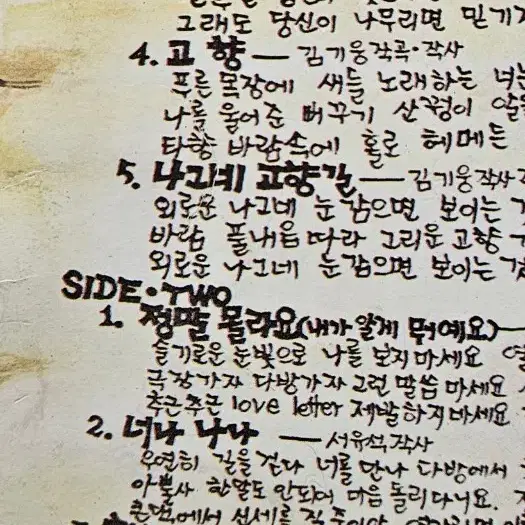 그래도 당신이 나무리면 믿기
4. 고향 — 김기웅작곡·작사
푸른 목장에 새들 노래하는 너는
나를 울어준 뻐꾸기 산꿩이
타향 바람속에 홀로 헤메든
5. 나그네 고향길 — 김기웅작사
외로운 나그네 눈감으면 보이는
바람 풀내음 따라 그리운 고향
외로운 나그네 눈감으면 보이는
SIDE·TWO
1. 정말 몰라요(내가 알게 뭐예요) —
슬기로운 눈빛으로 나를 보지마세요
극장가자 다방가자 그런 말씀 마세요
추근추근 love letter 제발 하지마세요
2. 너나 나나 — 서유석작사
우연히 길을 걷다 너를 만나 다방에서
아뿔사 한말도 안되어 마음 돌리다니요.